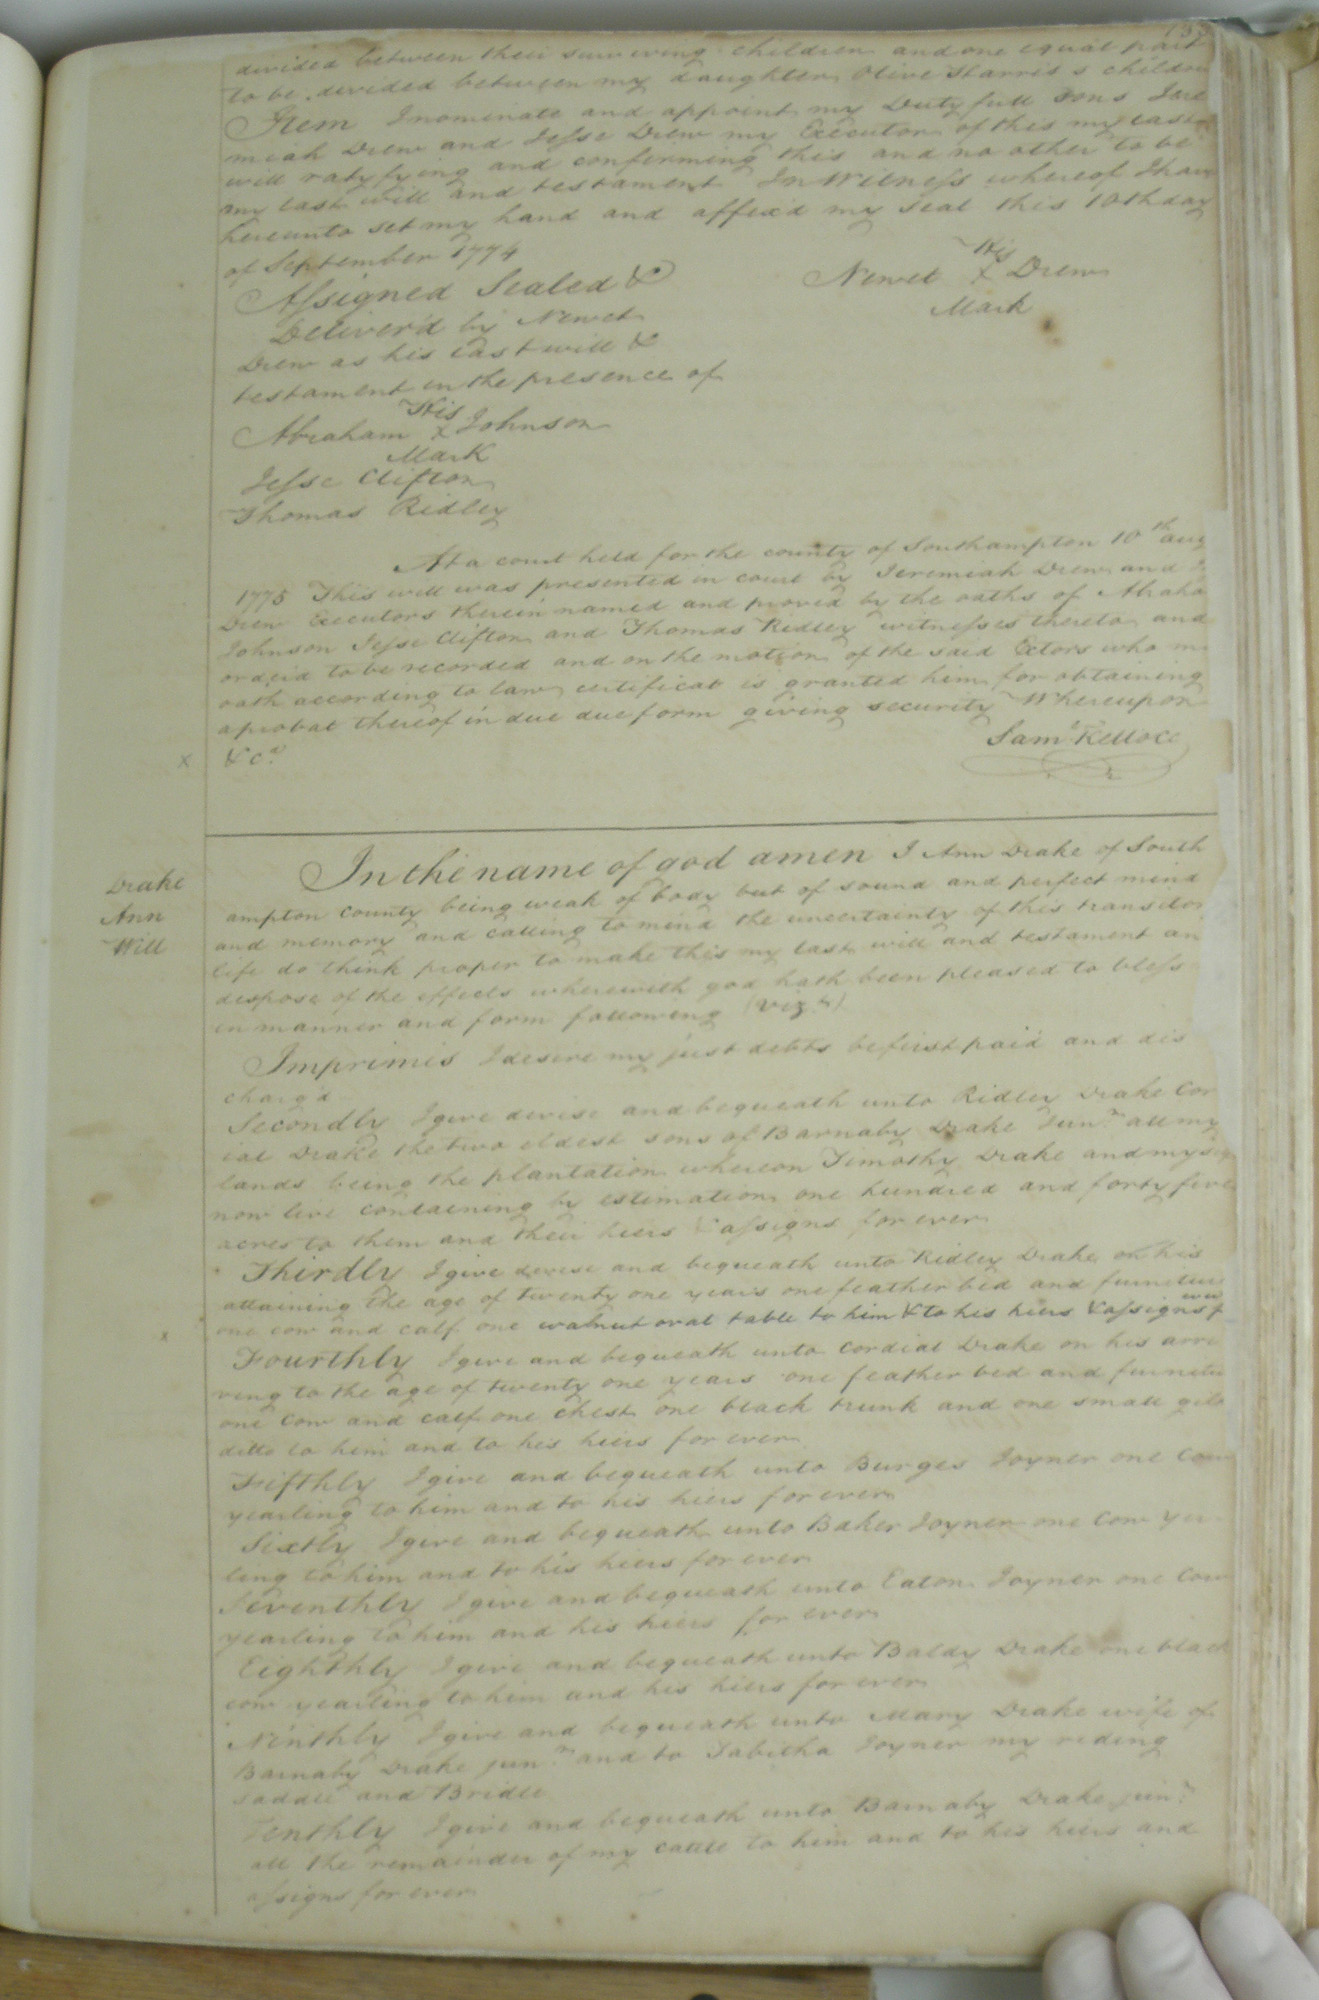 divided between their surviving children and one equal part
to be divided between my daughter Olive Harris's children
Item I nominate and appoint my Dutyfull sons Jere
miah Drew and Jesse Drew my Executors of this my last
will ratyfying and confirming this and no other to be
my last will and testament In Witness whereof I have
hereunto set my hand and affix'd my seal this 10th day
of September 1774
His
Newet x Drew
Mark
Assigned Sealed &
Deliver'd by Newet
Drew as his last will &
testament in the presence of
His
Abraham x Johnson
Mark
Jesse Clifton
Thomas Ridley
At a court held for the county of Southampton 10th aug
1775 This will was presented in court by Jeremiah Drew and J
Drew Executors therein named and proved by the oaths of Abraha
Johnson Jesse Clifton and Thomas Ridley witnesses thereto and
orderd to be recorded and on the motion of the said Extors who m
oath according to law certificat is granted him for obtaining
a probat thereof in due due form giving security Whereupon
x &ca
Saml Kelloce
Drake
Ann
Will
In the name of god amen I Ann Drake of South
ampton county being weak of body but of sound and perfect mind
and memory and calling to mind the uncertainty of this transitor
life do think proper to make this my last will and testament an
dispose of the effects wherewith god hath been pleased to bless
in manner and form following (vizt)
Imprimis I desire my just debts be first paid and dis
charg'd
Secondly I give devise and bequeath unto Ridley Drake Cor
ial Drake the two eldest sons of Barnaby Drake Junr all my
lands being the plantation whereon Timothy Drake and my
now live containing by estimation one hundred and forty five
acres to them and their hiers & assigns for ever
Thirdly I give devise and bequeath unto Ridley Drake on his
attaining the age of twenty one years one feather bed and furniture
x one cow and calf one walnut oval table to him & to his hiers & assigns f
ever
Fourthly I give and bequeath unto Cordial Drake on his arri
ving to the age of twenty one years one feather bed and furnitu
one cow and calf one chest one black trunk and one small
ditto to him and to his hiers for ever
Fifthly I give and bequeath unto Burges Joyner one cow
yearling to him and to his hiers for ever
Sixtly I give and bequeath unto Baker Joyner one cow yer
ling to him and to his hiers for ever
Seventhly I give and bequeath unto Eaton Joyner one cow
yearling to him and his hiers for ever
Eighthly I give and bequeath unto Baldy Drake one black
cow yearling to him and his hiers for ever
Ninthly I give and bequeath unto Mary Drake wife of
Barnaby Drake junr and to Tabitha Joyner my riding
saddle and Bridle
Tenthly I give and bequeath unto Barnaby Drake junr
all the remainder of my cattle to him and to his hiers and
assigns for ever